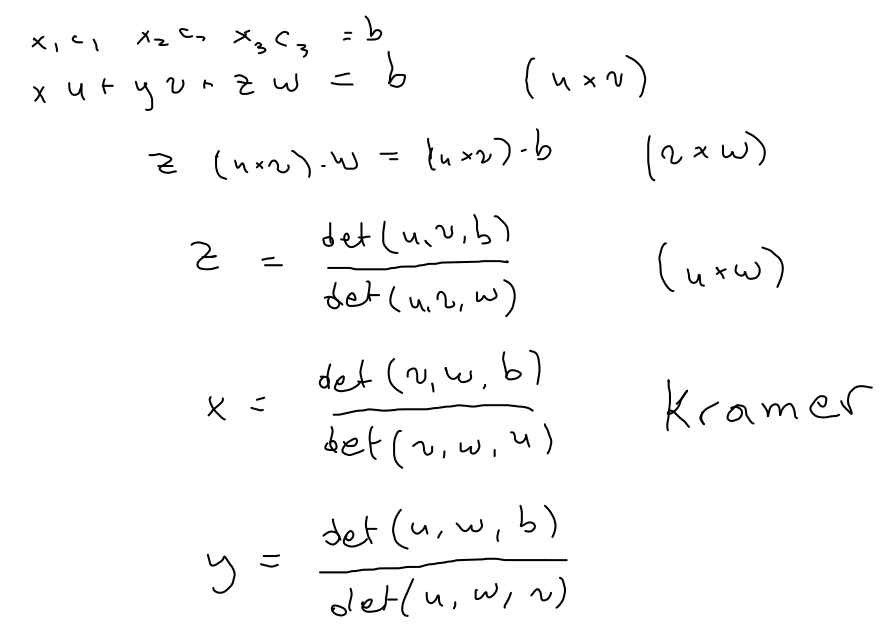 x₁ c₁ x₂ c₂ x₃ c₃ = b
x u + y v + z w = b (u × v)
z (u × v) · w = (u × v) · b (v × w)
z = det(u, v, b) / det(u, v, w) (u × w)
x = det(v, w, b) / det(v, w, u) Kramer
y = det(u, w, b) / det(u, w, v)